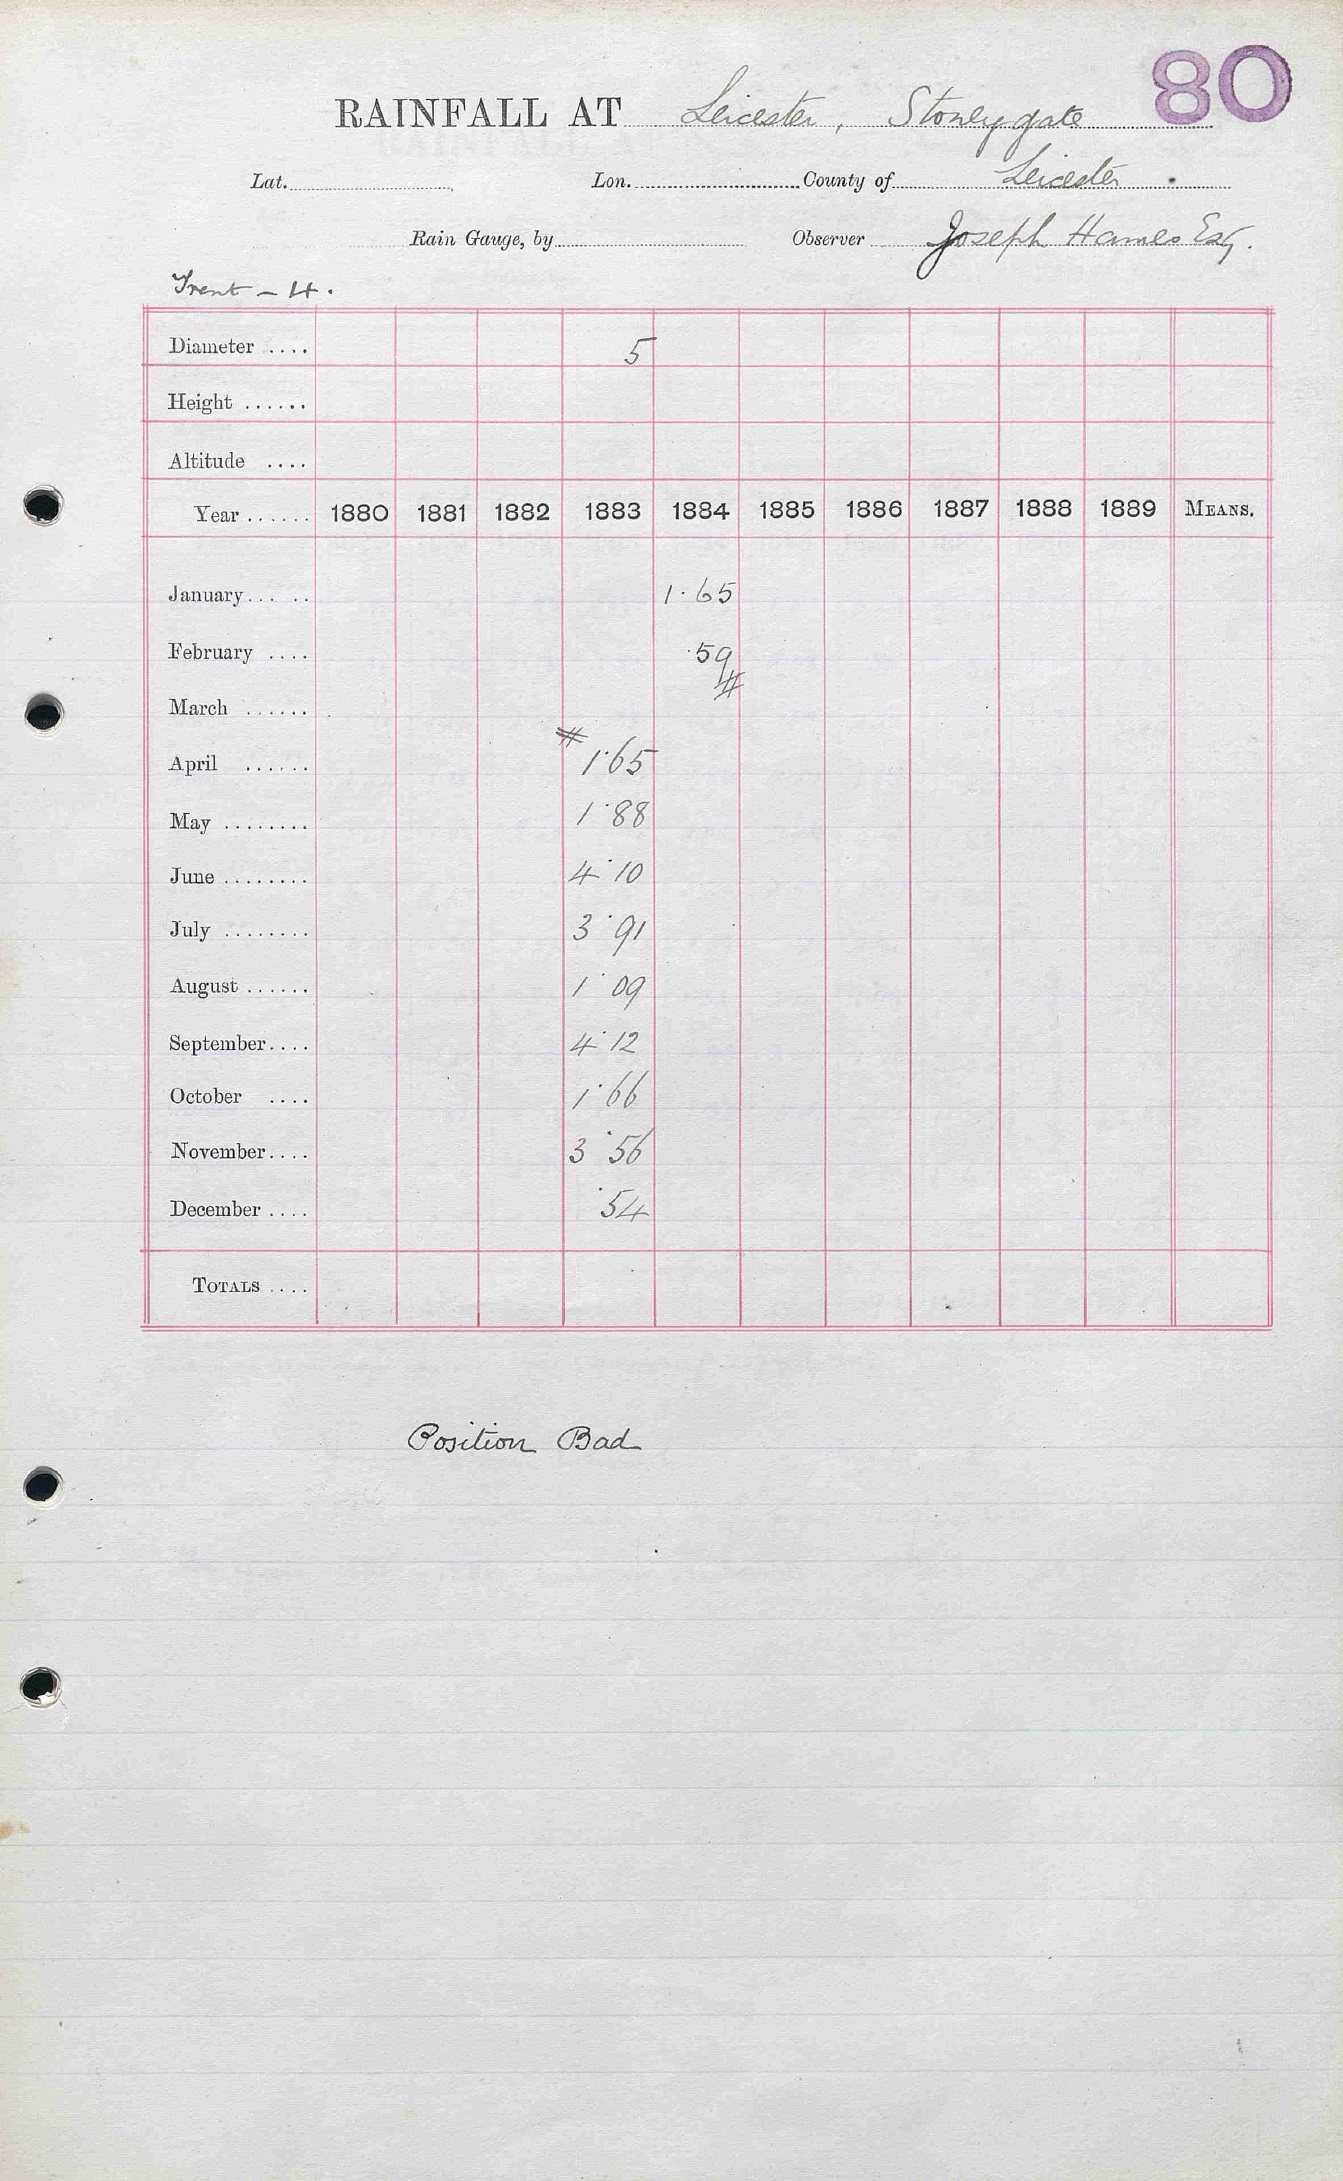 80
RAINFALL AT Leicester, Stoneygate
Lat. Lon. County of Leicester
Rain Gauge, by Observer Joseph Hames Esq.
Trent – 4.
Diameter .... 5
Height ......
Altitude ....
Year ...... 1880 1881 1882 1883 1884 1885 1886 1887 1888 1889 MEANS.
January ... .. 1·65
February .... ·59
#
March ......
#
April ...... 1·65
May ........ 1·88
June ........ 4·10
July ........ 3·91
August ...... 1·09
September .... 4·12
October .... 1·66
November .... 3·56
December .... ·54
TOTALS ....
Position Bad